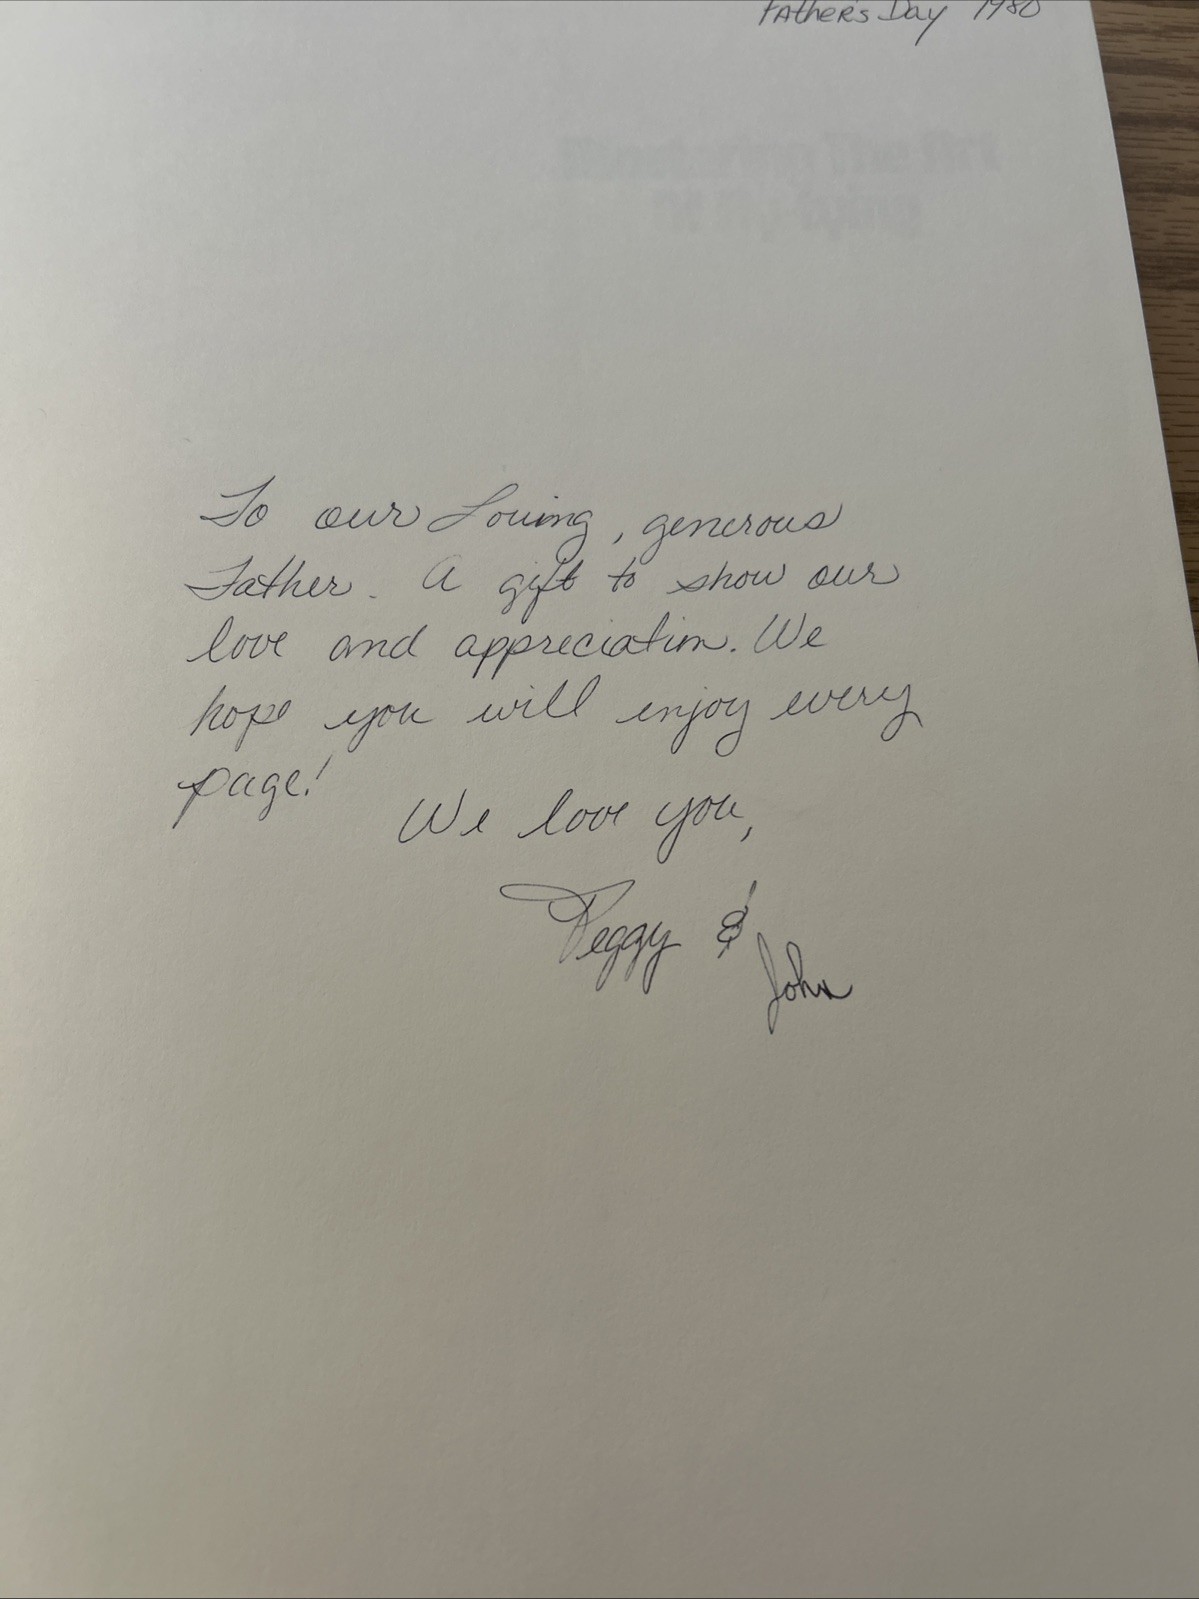 Father's Day 1980
Mastering The Art
Of Fly-tying
To our Loving, generous
Father. A gift to show our
love and appreciation. We
hope you will enjoy every
page!
We love you,
Peggy &
John